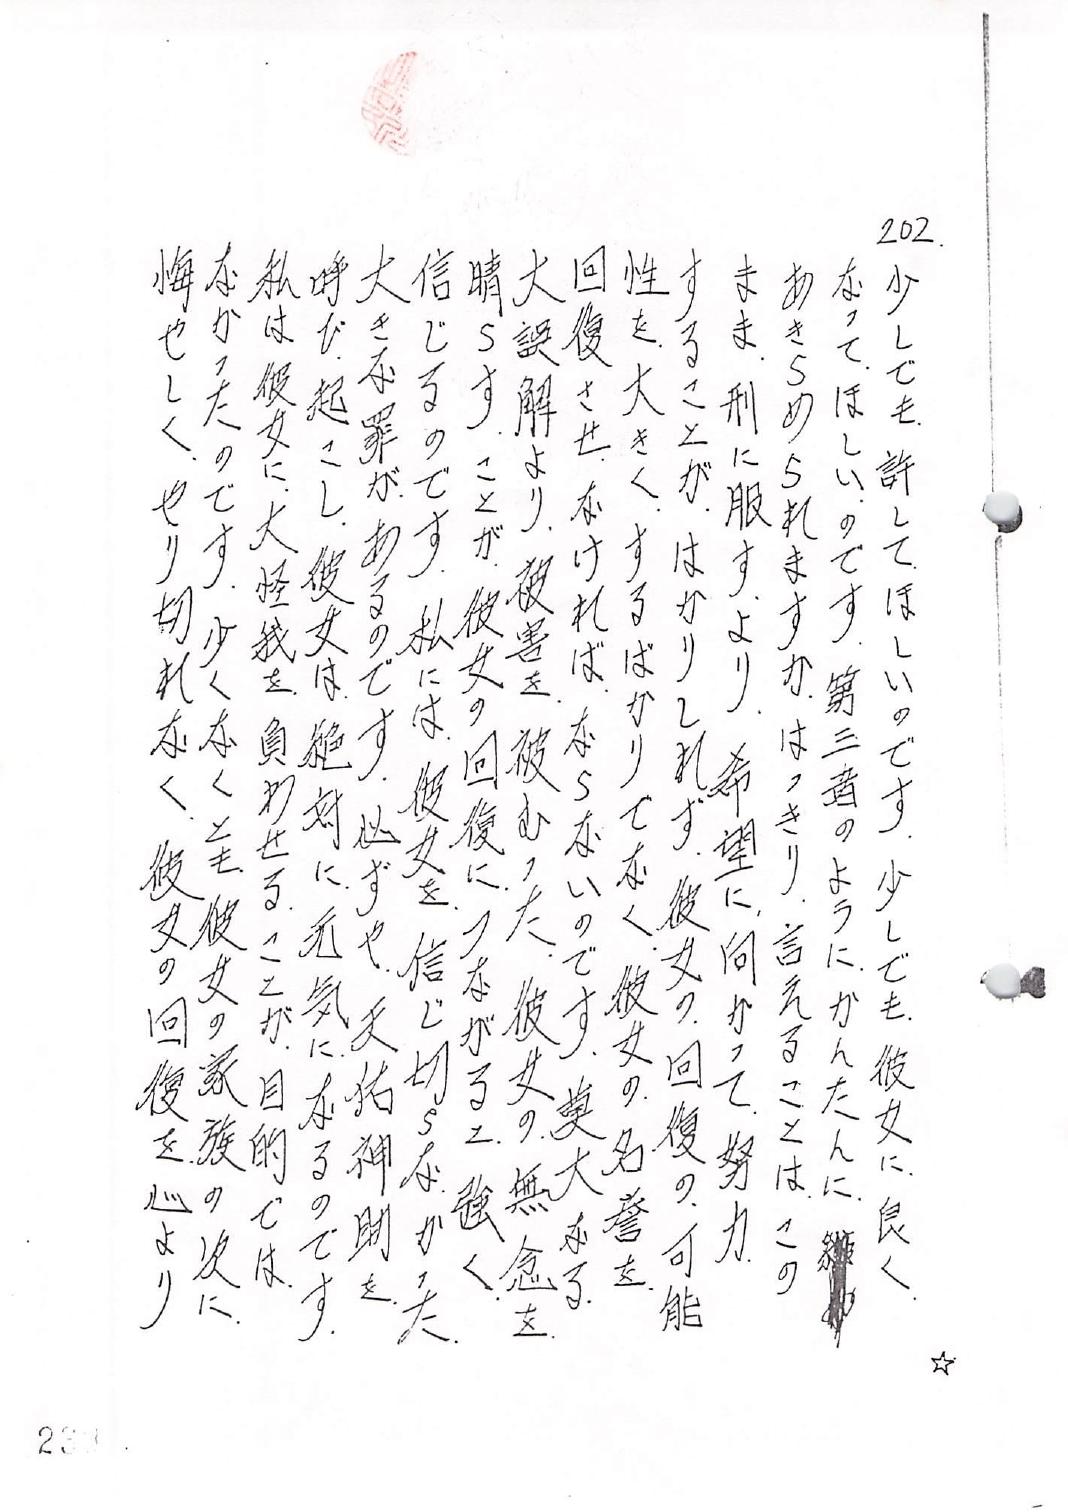 202.
少しでも、許してほしいのです。少しでも、彼女に、良く
なって、ほしいのです。第三者のように、かんたんに、
あきらめられますか、はっきり、言えることは、この
まま、刑に服す、より、希望に、向かって、努力
することが、はかりしれず、彼女の、回復の、可能
性を、大きく、するばかりでなく、彼女の、名誉を、
回復させ、なけれれば、ならないのです。莫大なる、
大誤解より、被害を、被むった、彼女の、無念を、
晴らす、ことが、彼女の回復に、つながると、強く、
信じるのです。私には、彼女を、信じ切らなかった、
大きな罪が、あるのです。必ずや、天佑神助を、
呼び、起こし、彼女は、絶対に、元気に、なるのです。
私は彼女に、大怪我を、負わせる、ことが、目的では、
なかったのです。少くなくとも、彼女の家族の次に、
悔やしく、やり切れなく、彼女の回復を、心より
☆
23